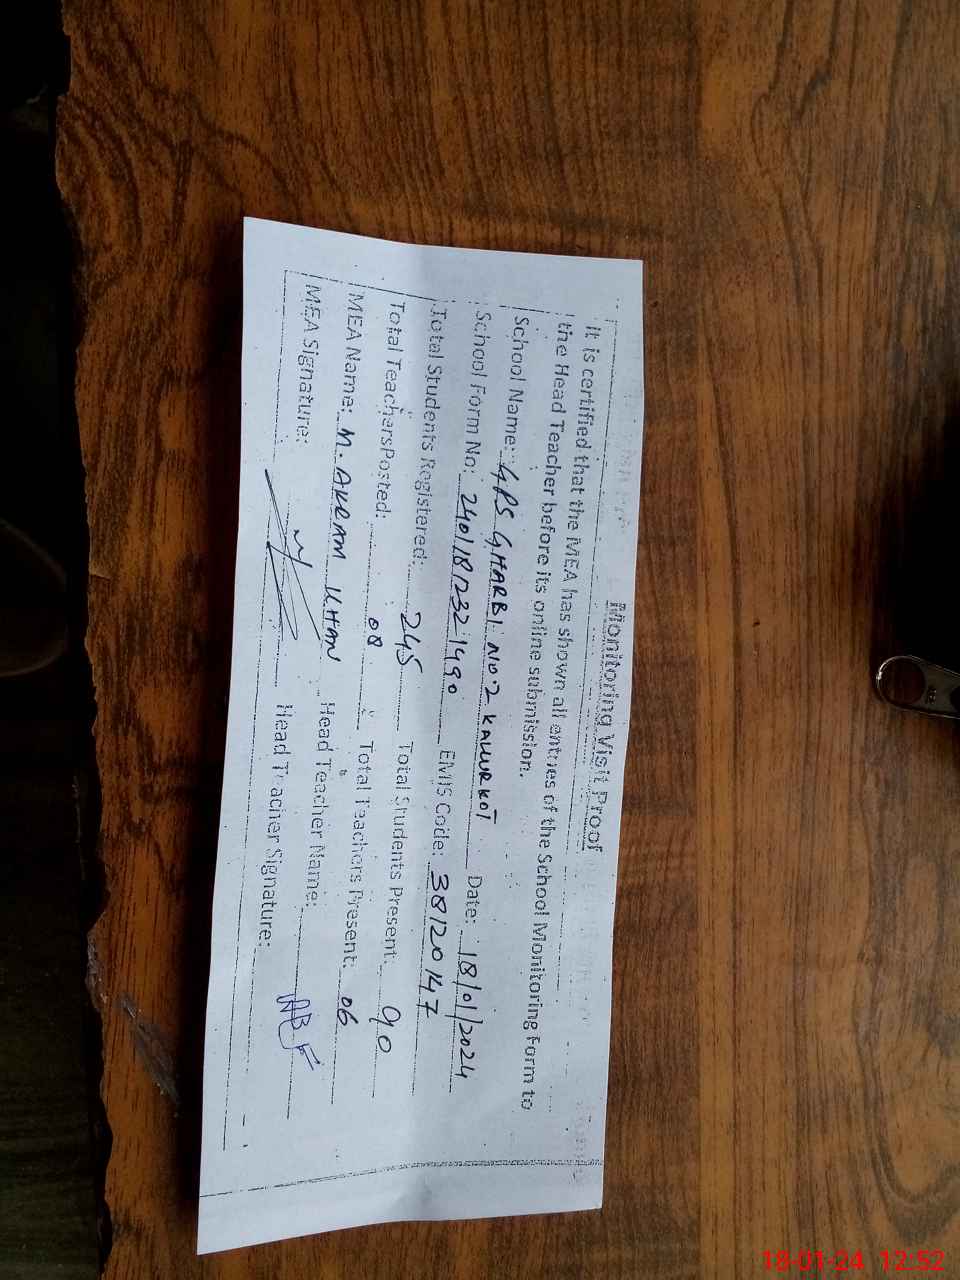 Monitoring Visit Proof
It is certified that the MEA has shown all entries of the School Monitoring Form to
the Head Teacher before its online submission.
School Name: GPS GHARBI NO.2 KALLURKOT Date: 18/01/2024
School Form No: 2401/18/232-1490 EMIS Code: 38120147
Total Students Registered: 245 Total Students Present: 90
Total Teachers Posted: 08 Total Teachers Present: 06
MEA Name: M. AKRAM KHAN Head Teacher Name:
MEA Signature: Head Teacher Signature:
18-01-24 12:52